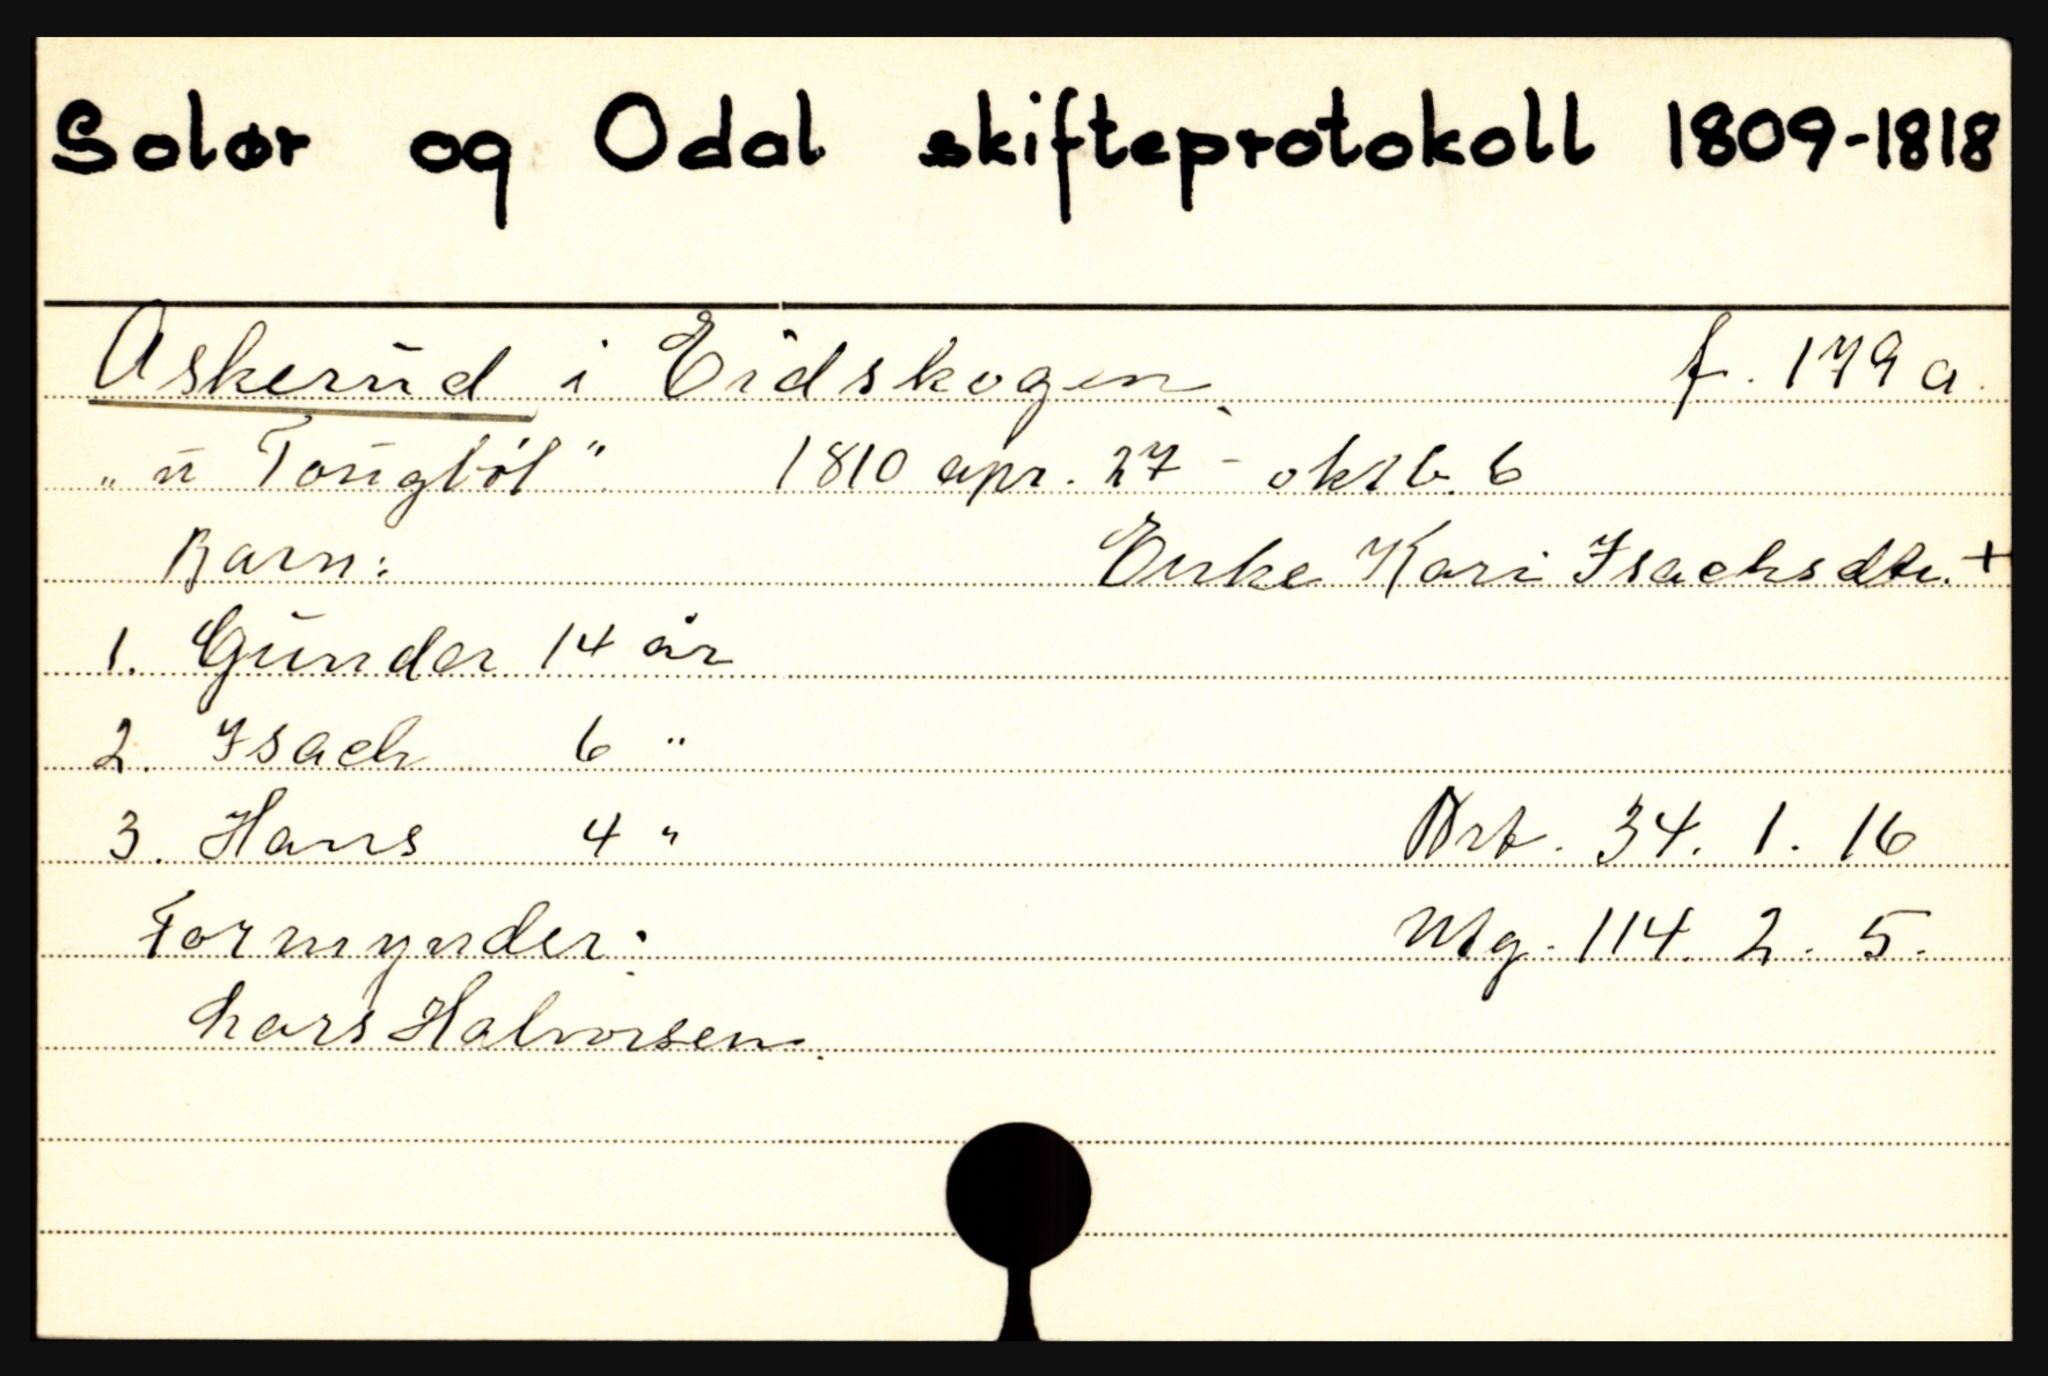 Solør og Odal skifteprotokoll 1809-1818
Askerud i Eidskogen. f. 179 a.
„u Tougböl" 1810 apr. 27 - oktb. 6
Barn: Enke Kari Isachsdtr. +
1. Gunder 14 år
2. Isach 6 "
3. Hans 4 " Brt. 34. 1. 16
Formynder: Mg. 114. 2. 5.
Lars Halvorsen.